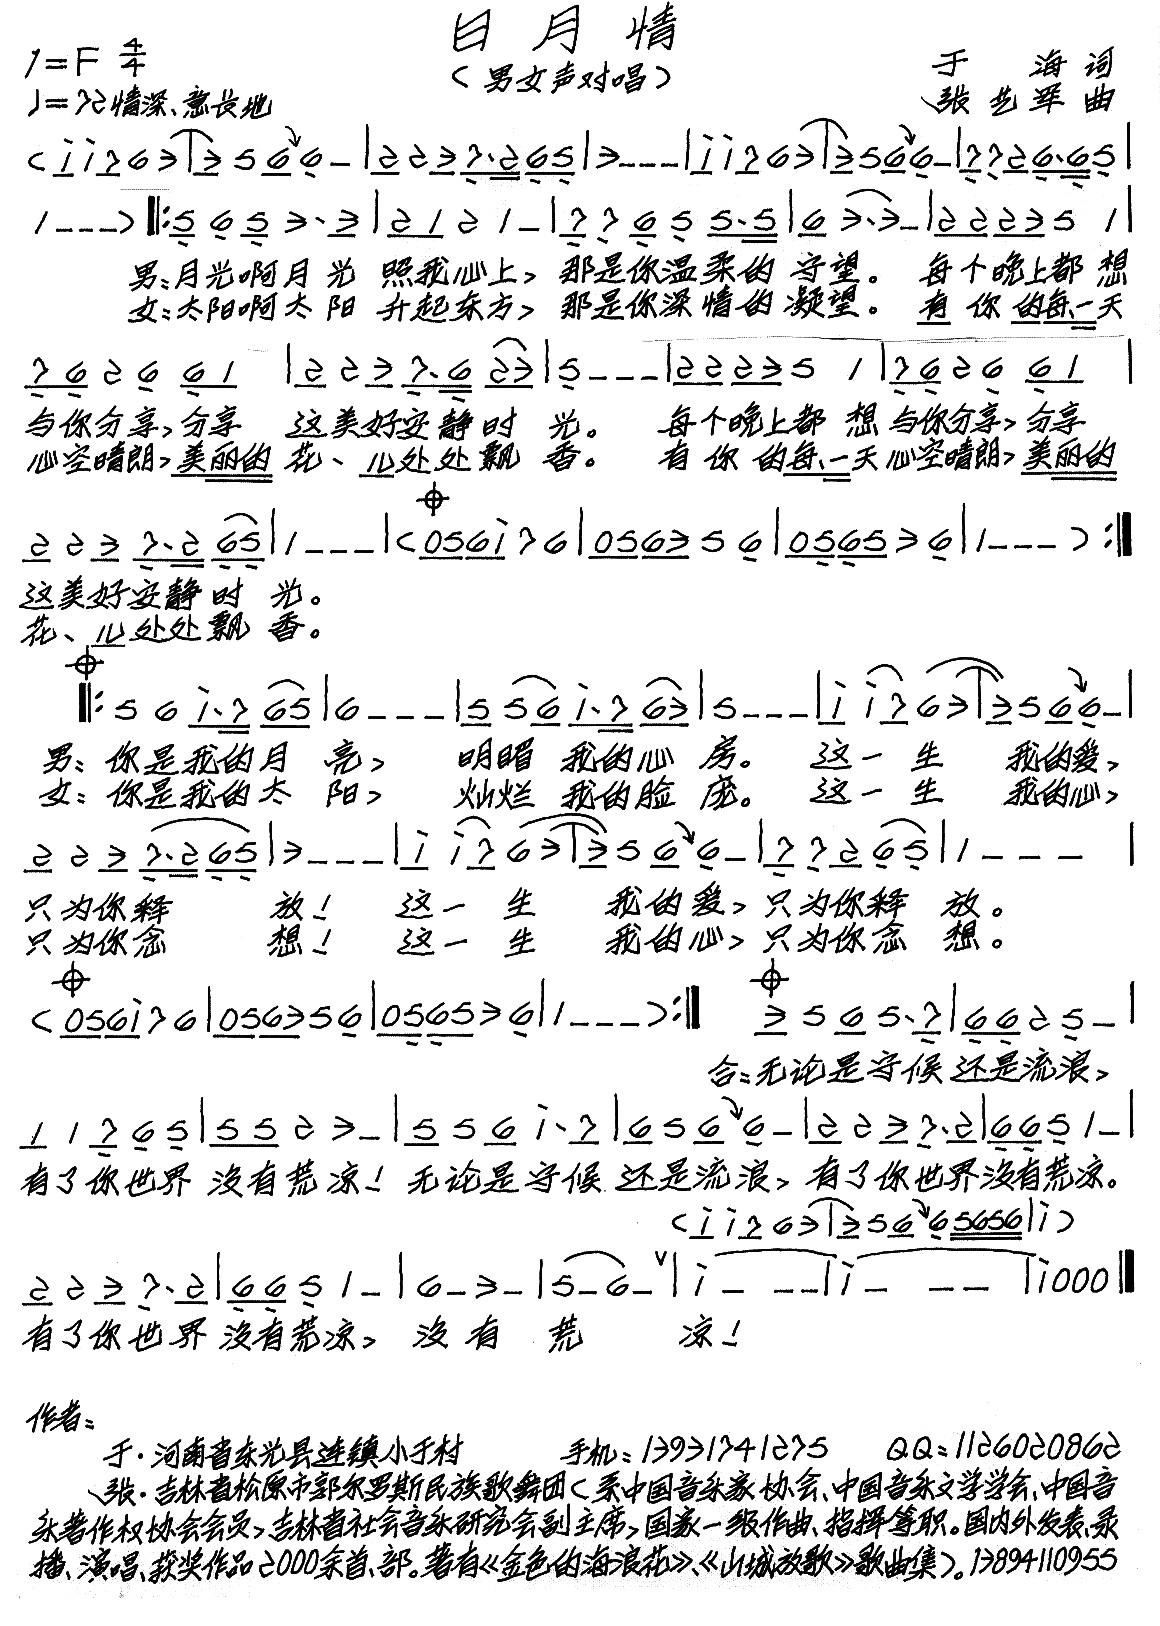 日月情
1=F 4/4
（男女声对唱）
于 海 词
♩=72 情深、意长地
张艺军 曲
（i i 7 6 3 | 3 5 6 6 － | 2 2 3 7·2 6 5 | 3 － － － | i i 7 6 3 | 3 5 6 6 － | 7 7 2 6·6 5 |
1 － － － ）‖: 5 6 5 3·3 | 2 1 2 1 － | 7 7 6 5 5·5 | 6 3·3 － | 2 2 2 3 5 1 |
男：月光啊月光 照我心上， 那是你温柔的 守望。 每个晚上都 想
女：太阳啊太阳 升起东方， 那是你深情的 凝望。 有 你 的每、一天
7 6 2 6 6 1 | 2 2 3 7·6 2 3 | 5 － － － | 2 2 2 3 5 1 | 7 6 2 6 6 1 |
与你分享，分享 这美好安静时 光。 每个晚上都 想 与你分享，分享
心空晴朗，美丽的 花、儿处处飘 香。 有 你 的每、一天 心空晴朗，美丽的
2 2 3 7·2 6 5 | 1 － － － |（0 5 6 i 7 6 | 0 5 6 3 5 6 | 0 5 6 5 3 6 | 1 － － － ）:‖
这美好安静时 光。
花、儿处处飘 香。
‖: 5 6 i·7 6 5 | 6 － － － | 5 5 6 i·7 6 3 | 5 － － － | i i 7 6 3 | 3 5 6 6 － |
男：你是我的月 亮， 明媚 我的心 房。 这一生 我的爱，
女：你是我的太 阳， 灿烂 我的脸 庞。 这一生 我的心，
2 2 3 7·2 6 5 | 3 － － － | i i 7 6 3 | 3 5 6 6 － | 7 7 2 6 5 | 1 － － － |
只为你释 放！ 这一生 我的爱，只为你释 放。
只为你念 想！ 这一生 我的心，只为你念 想。
（0 5 6 i 7 6 | 0 5 6 3 5 6 | 0 5 6 5 3 6 | 1 － － － ）:‖ 3 5 6 5·7 | 6 6 2 5 － |
合：无论是守候 还是流浪，
1 1 7 6 5 | 5 5 2 3 － | 5 5 6 i·7 | 6 5 6 6 － | 2 2 3 7·2 | 6 6 5 1 － |
有了你世界 没有荒凉！ 无论是守候 还是流浪， 有了你世界没有荒凉。
（i i 7 6 3 | 3 5 6 6 5 6 5 6 | i）
2 2 3 7·2 | 6 6 5 1 － | 6 － 3 － | 5 － 6 － ∨ | i － － － | i － － － | i 0 0 0 ‖
有了你世界 没有荒凉， 没 有 荒 凉！
作者：
于·河南省东光县连镇小于村 手机：13931741275 QQ：1126020862
张·吉林省松原市郭尔罗斯民族歌舞团（系中国音乐家协会、中国音乐文学学会、中国音
乐著作权协会会员，吉林省社会音乐研究会副主席，国家一级作曲、指挥等职。国内外发表、录
播、演唱、获奖作品2000余首、部。著有《金色的海浪花》、《山城放歌》歌曲集）。13894110955